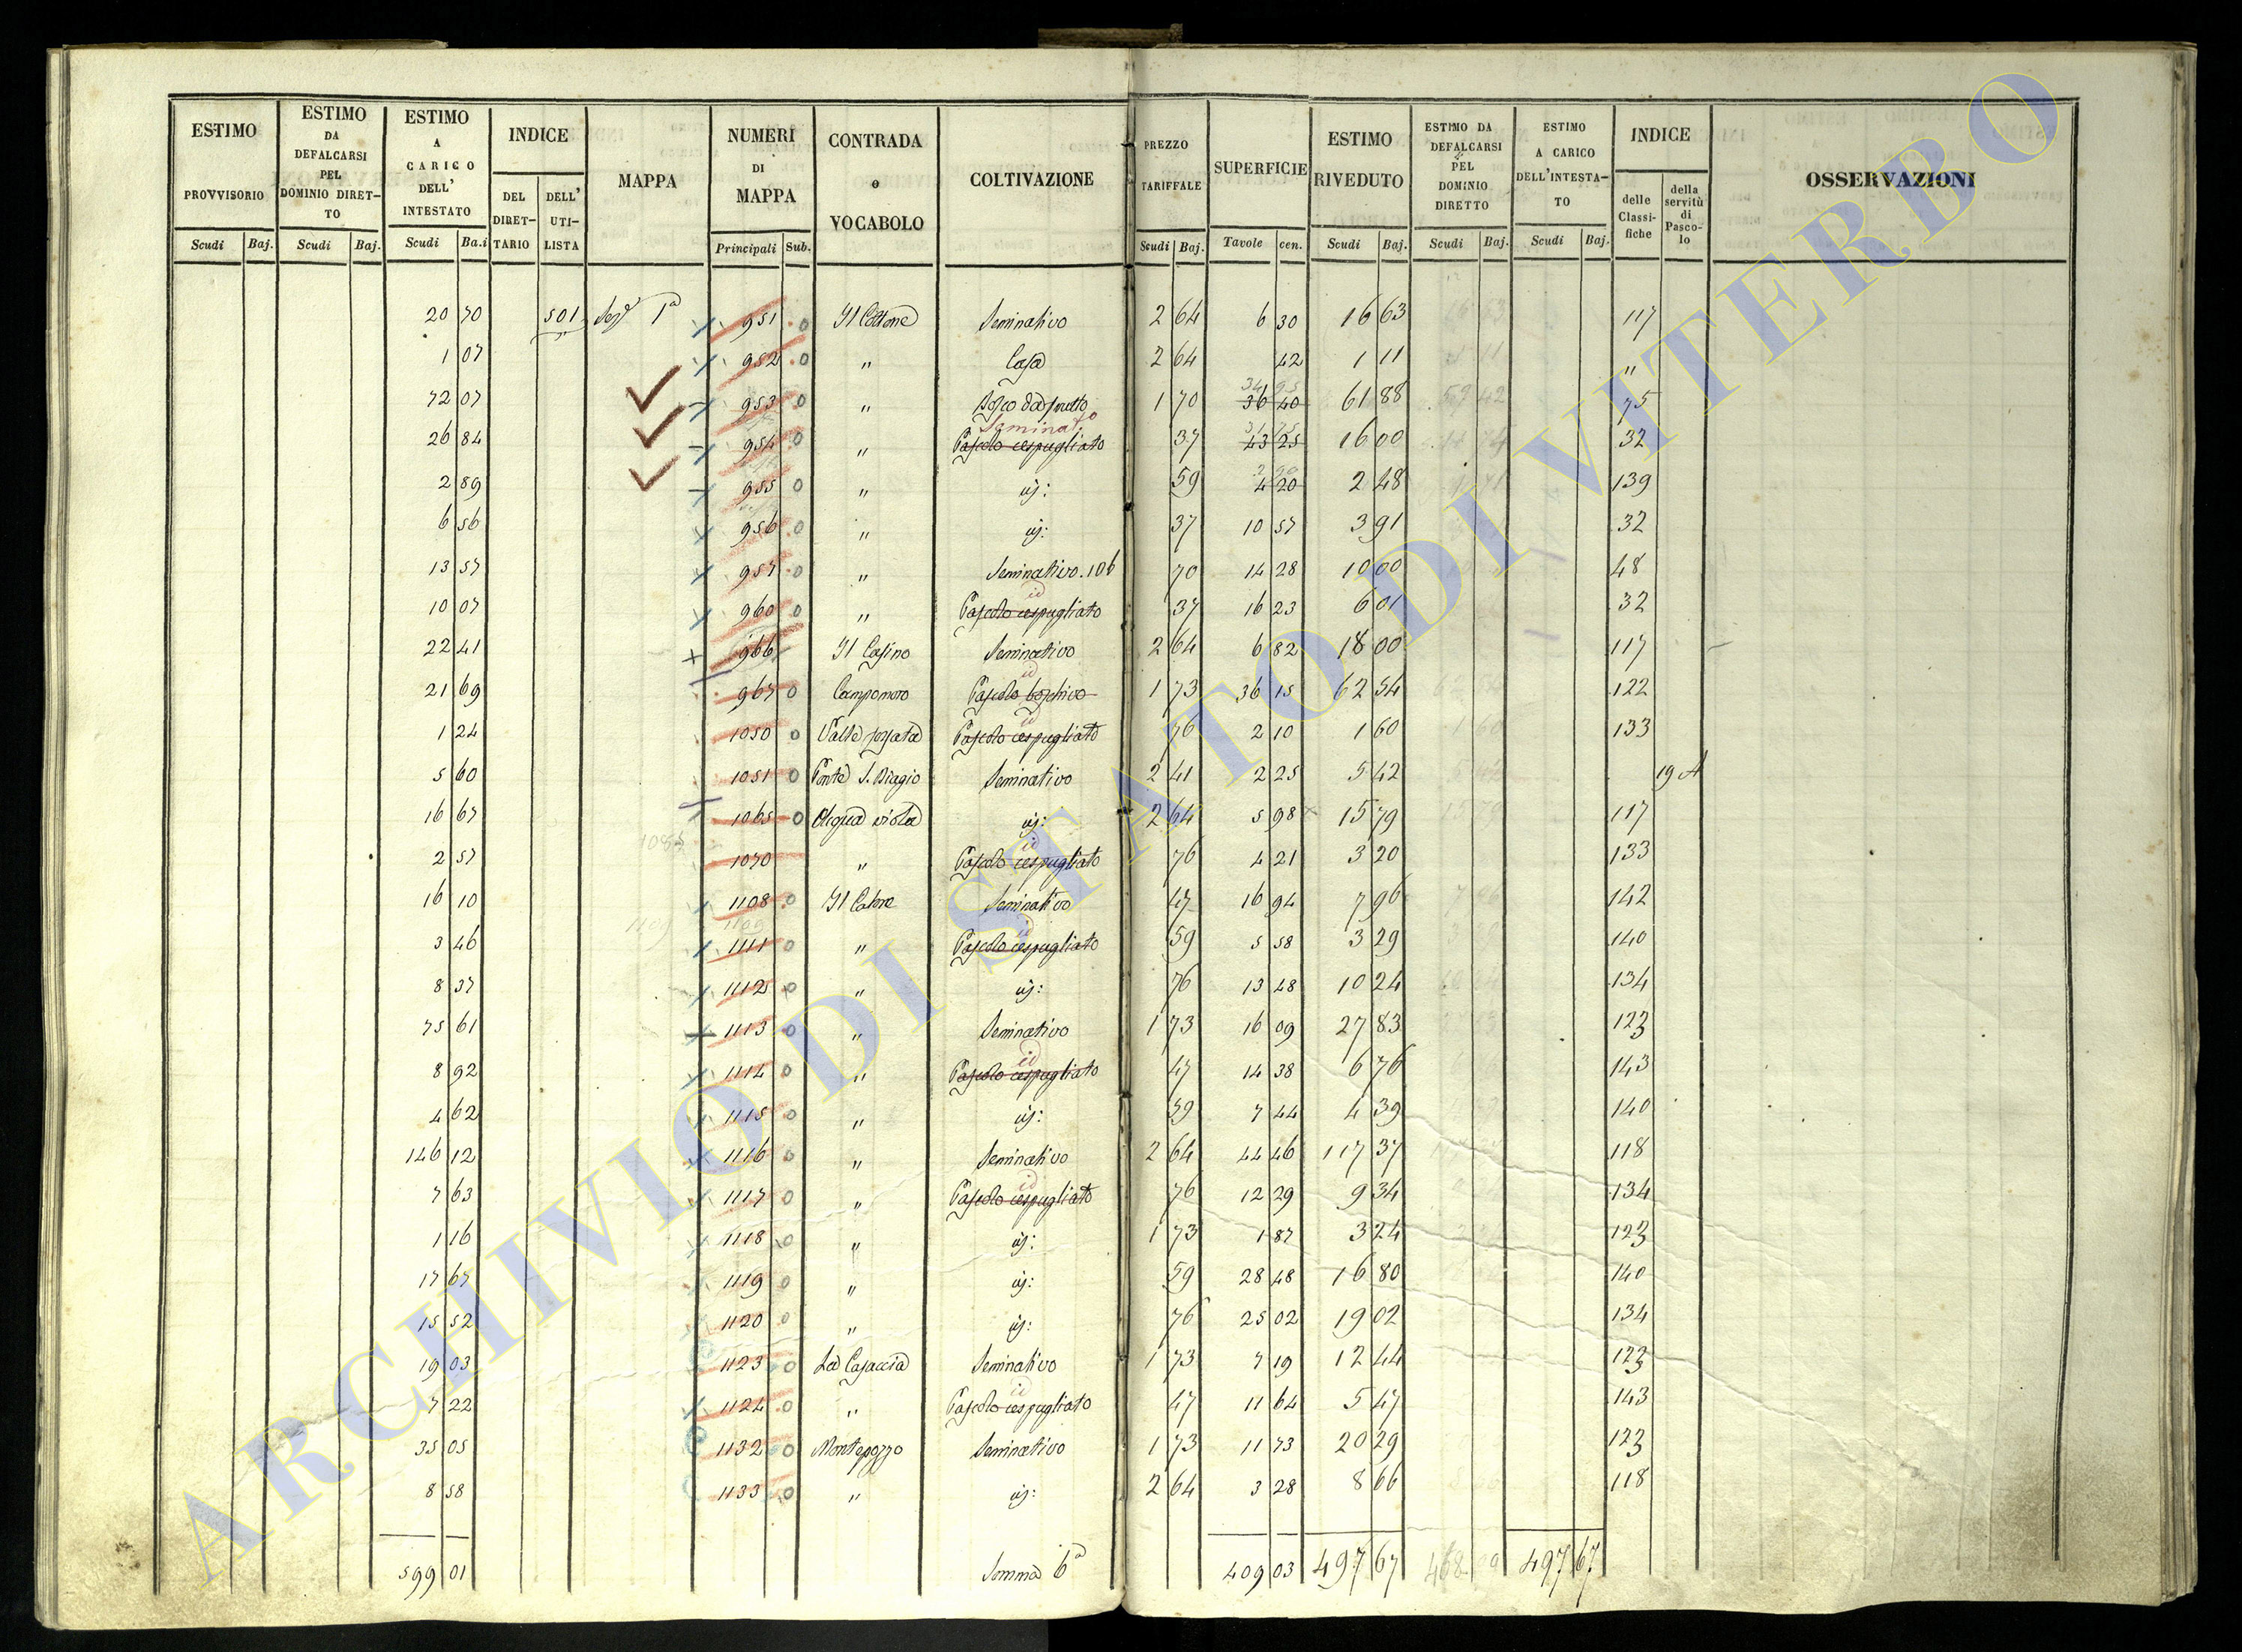 ESTIMO PROVVISORIO | ESTIMO DA DEFALCARSI PEL DOMINIO DIRET-TO | ESTIMO A CARICO DELL' INTESTATO | INDICE DEL DIRET-TARIO | DELL' UTI-LISTA | MAPPA | NUMERI DI MAPPA | CONTRADA o VOCABOLO | COLTIVAZIONE | PREZZO TARIFFALE | SUPERFICIE | ESTIMO RIVEDUTO | ESTIMO DA DEFALCARSI PEL DOMINIO DIRETTO | ESTIMO A CARICO DELL'INTESTA-TO | INDICE delle Classi-fiche | della servitù di Pasco-lo | OSSERVAZIONI
Scudi Baj. | Scudi Baj. | Scudi Ba.i | Principali Sub. | Scudi Baj. | Tavole cen. | Scudi Baj. | Scudi Baj. | Scudi Baj.
20 70 501 Sez. 1a 951 0 Il Cottone Seminativo 2 64 6 30 16 63 117
1 07 952 0 " Casa 2 64 42 1 11 "
34 95
72 07 953 0 " Bosco da frutto 1 70 36 40 61 88 75
Seminato
26 84 954 0 " Pascolo cespugliato 37 43 25 16 00 32
2 89 955 0 " id: 59 4 20 2 48 139
6 56 956 0 " id: 37 10 57 3 91 32
13 57 957 0 " Seminativo. 106 70 14 28 10 00 48
id
10 07 960 0 " Pascolo cespugliato 37 16 23 6 01 32
22 41 966 Il Casino Seminativo 2 64 6 82 18 00 117
id
21 69 967 0 Camponovo Pascolo boschivo 1 73 36 15 62 54 122
id
1 24 1050 0 Valle Pascolo cespugliato 76 2 10 1 60 133
5 60 1051 0 Ponte S. Biagio Seminativo 2 41 2 25 5 42 19 A
16 67 1065 0 Acqua viola id: 2 64 5 98 15 79 117
id
2 57 1070 " Pascolo cespugliato 76 4 21 3 20 133
16 10 1108 0 Seminativo 47 16 94 7 96 142
1109 1109 id
3 46 1111 0 " Pascolo cespugliato 59 5 58 3 29 140
8 37 1112 0 " id: 76 13 48 10 24 134
75 61 1113 0 " Seminativo 1 73 16 09 27 83 123
id
8 92 1114 0 " Pascolo cespugliato 47 14 38 6 76 143
4 62 1115 0 " id: 59 7 44 4 39 140
146 12 1116 0 " Seminativo 2 64 44 46 117 37 118
id
7 63 1117 0 " Pascolo cespugliato 76 12 29 9 34 134
1 16 1118 0 " id: 1 73 1 87 3 24 123
17 67 1119 0 " id: 59 28 48 16 80 140
15 52 1120 0 " id: 76 25 02 19 02 134
19 03 1123 0 La Casaccia Seminativo 1 73 7 19 12 44 123
id
7 22 1124 0 " Pascolo cespugliato 47 11 64 5 47 143
35 05 1132 0 Montepozzo Seminativo 1 73 11 73 20 29 123
8 58 1133 0 " id: 2 64 3 28 8 66 118
599 01 Somma 6a 409 03 497 67 468 497 67
ARCHIVIO DI STATO DI VITERBO